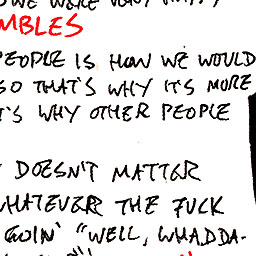 WE WERE VERY HAPPY
MBLES
PEOPLE IS HOW WE WOULD
SO THAT'S WHY IT'S MORE
T'S WHY OTHER PEOPLE
DOESN'T MATTER
WHATEVER THE FUCK
GOIN' "WELL, WHADDA-